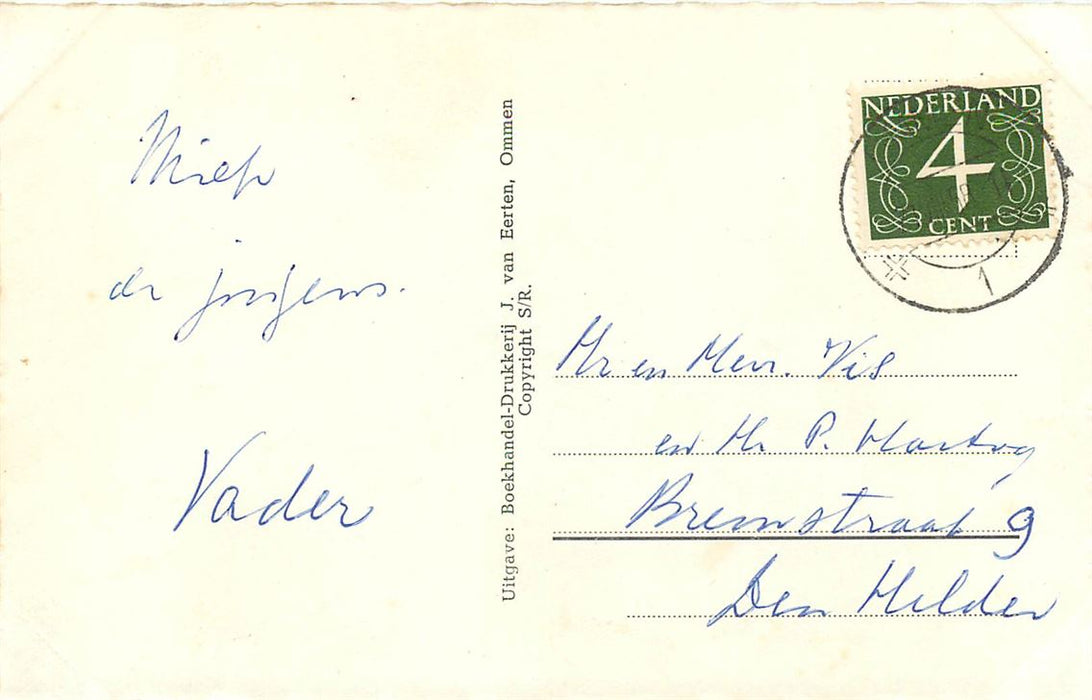 Miep
de jongens.
Vader
Uitgave: Boekhandel-Drukkerij J. van Eerten, Ommen
Copyright S/R.
NEDERLAND
4
CENT
1
Hr en Mevr. Vis
en Hr P. Hartog
Bremstraat 9
Den Helder